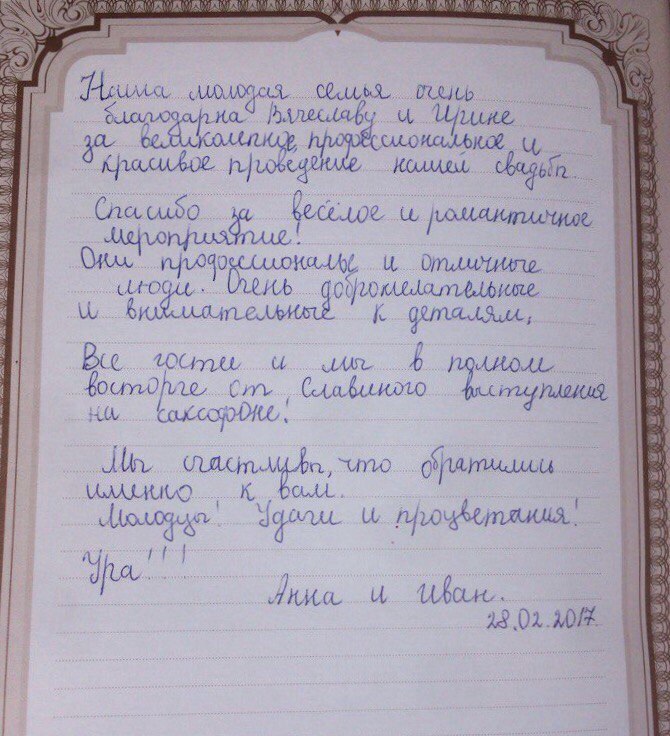 Наша молодая семья очень
благодарна Вячеславу и Ирине
за великолепное, профессиональное и
красивое проведение нашей свадьбы
Спасибо за весёлое и романтичное
мероприятие!
Они профессионалы и отличные
люди. Очень доброжелательные
и внимательные к деталям.
Все гости и мы в полном
восторге от Славиного выступления
на саксофоне!
Мы счастливы, что обратились
именно к вам.
Молодцы! Удачи и процветания!
Ура!!!
Анна и Иван.
28.02.2017